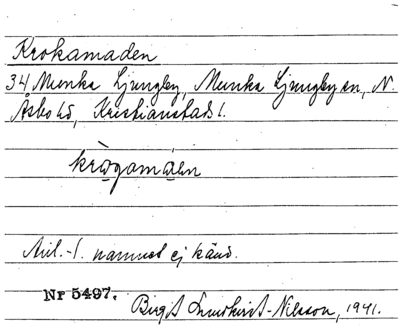 Krokamaden
34 Munka Ljungby, Munka Ljungby sn, N.
Åsbo hd, Kristianstads l.
krògamàen
namnet ej känd.
Nr 5497.
Birgit Lundkvist-Nilsson, 1941.